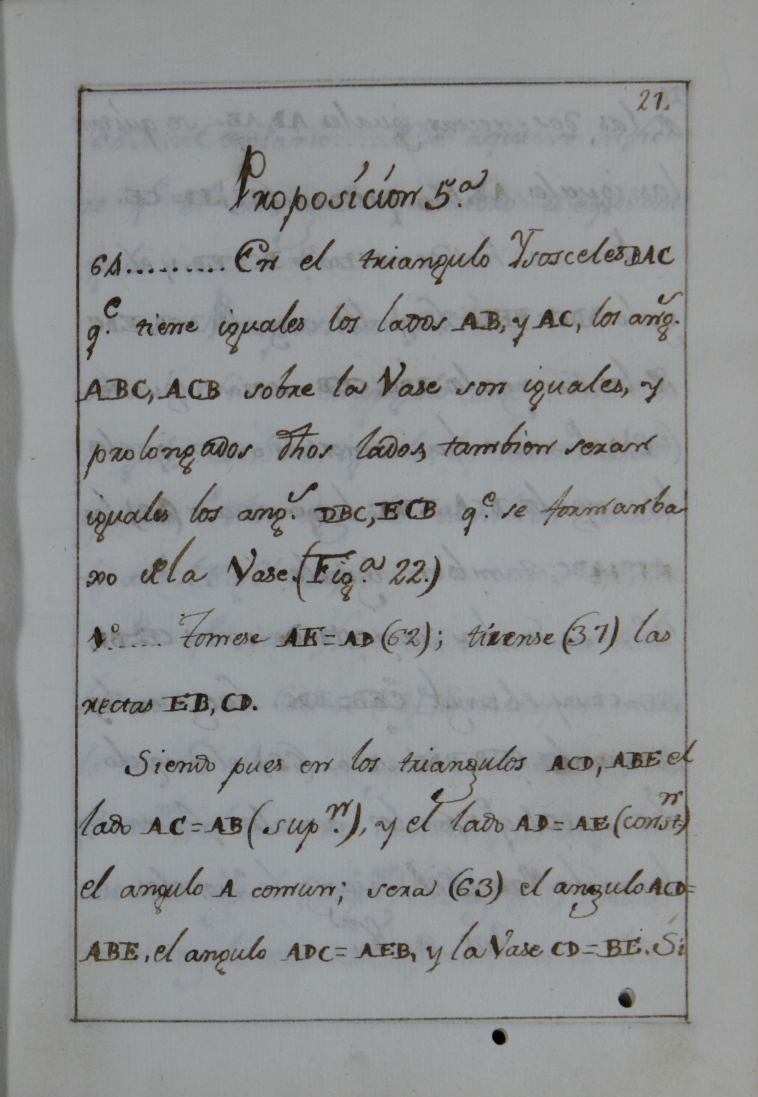 21.
Proposición 5.ª
64......... En el triangulo Ysosceles BAC
q.e tiene iguales los lados AB, y AC, los ang.s
ABC, ACB sobre la Vase son iguales, y
prolongados dhos lados, tambien seran
iguales los ang.s DBC, ECB q.e se forman ba
xo de la Vase. (Fig.a 22.)
N.o..... Tomese AE=AD (62); tirense (37) las
rectas EB, CD.
Siendo pues en los triangulos ACD, ABE el
lado AC=AB (sup.n), y el lado AD=AE (const.n)
el angulo A comun; sera (63) el angulo ACD=
ABE, el angulo ADC=AEB, y la Vase CD=BE. Si